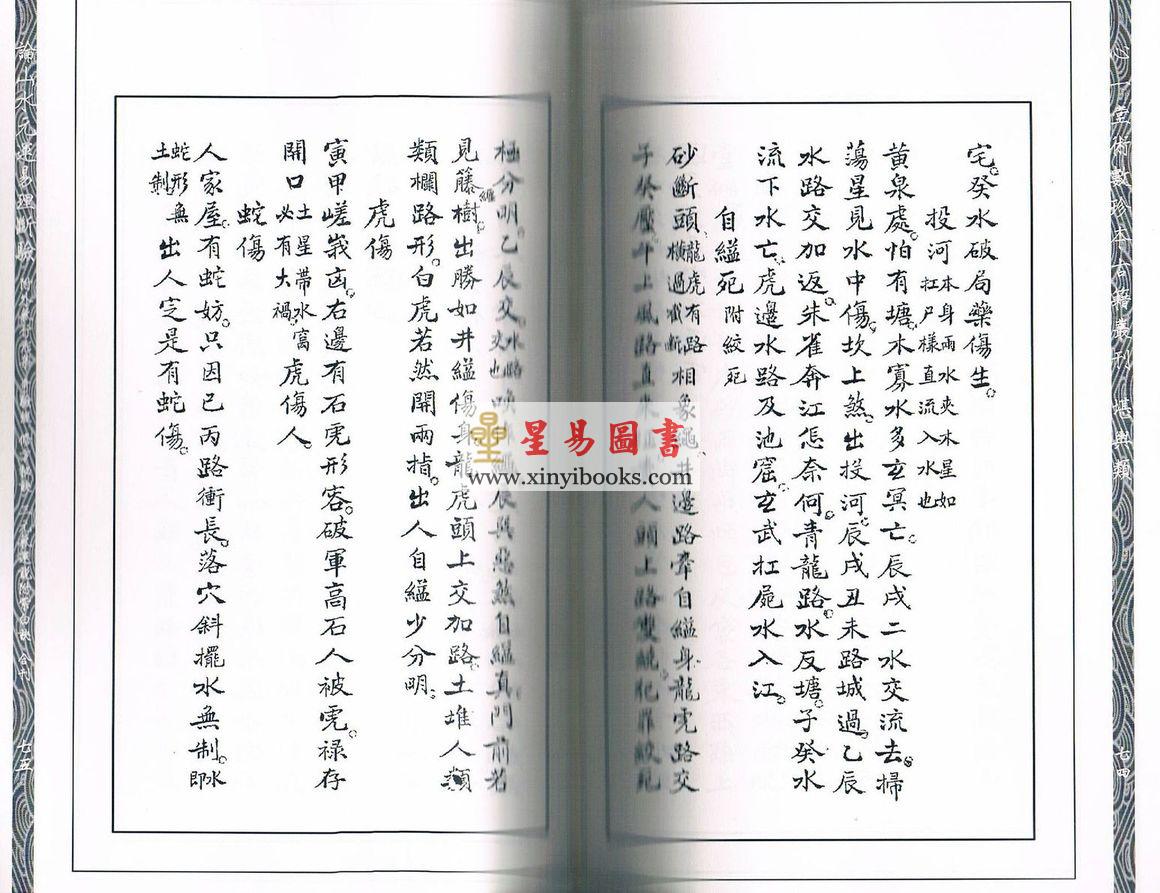 心一堂術數珍本古籍叢刊 堪輿類
七四
宅癸水破局藥傷生。
投河 本身兩水夾木星如扛尸樣直流入水也
黃泉處。怕有塘。木寡水多玄冥亡。辰戌二水交流去。掃
蕩星見水中傷。坎上煞。出投河。辰戌丑未路城過。乙辰
水路交加返。朱雀奔江怎奈何。青龍路。水反塘。子癸水
流下水亡。虎邊水路及池窟。玄武扛屍水入江。
自縊死 附絞死
砂斷頭。龍虎有路橫過截斷 相象繩。井邊路牽自縊身。龍虎路交
子癸壓。午上風路直來 人頭上路雙 犯罪絞死
極分明。乙辰交。水路交也 繩 辰巽惡煞自縊真。門前若
見藤纏樹。出勝如井縊傷身。龍虎頭上交加路。土堆人類
類欄路形。白虎若然開兩指。出人自縊少分明。
虎傷
寅甲嵯峩凶。右邊有石虎形容。破軍高石人被虎。祿存
開口土星帶水必有大禍窩虎傷人。
蛇傷
人家屋。有蛇妨。只因巳丙路衝長。落穴斜擺水無制。即水
蛇形無土制。出人定是有蛇傷。
論山水元運易理斷驗
合刊
七五
星易圖書
www.xinyibooks.com